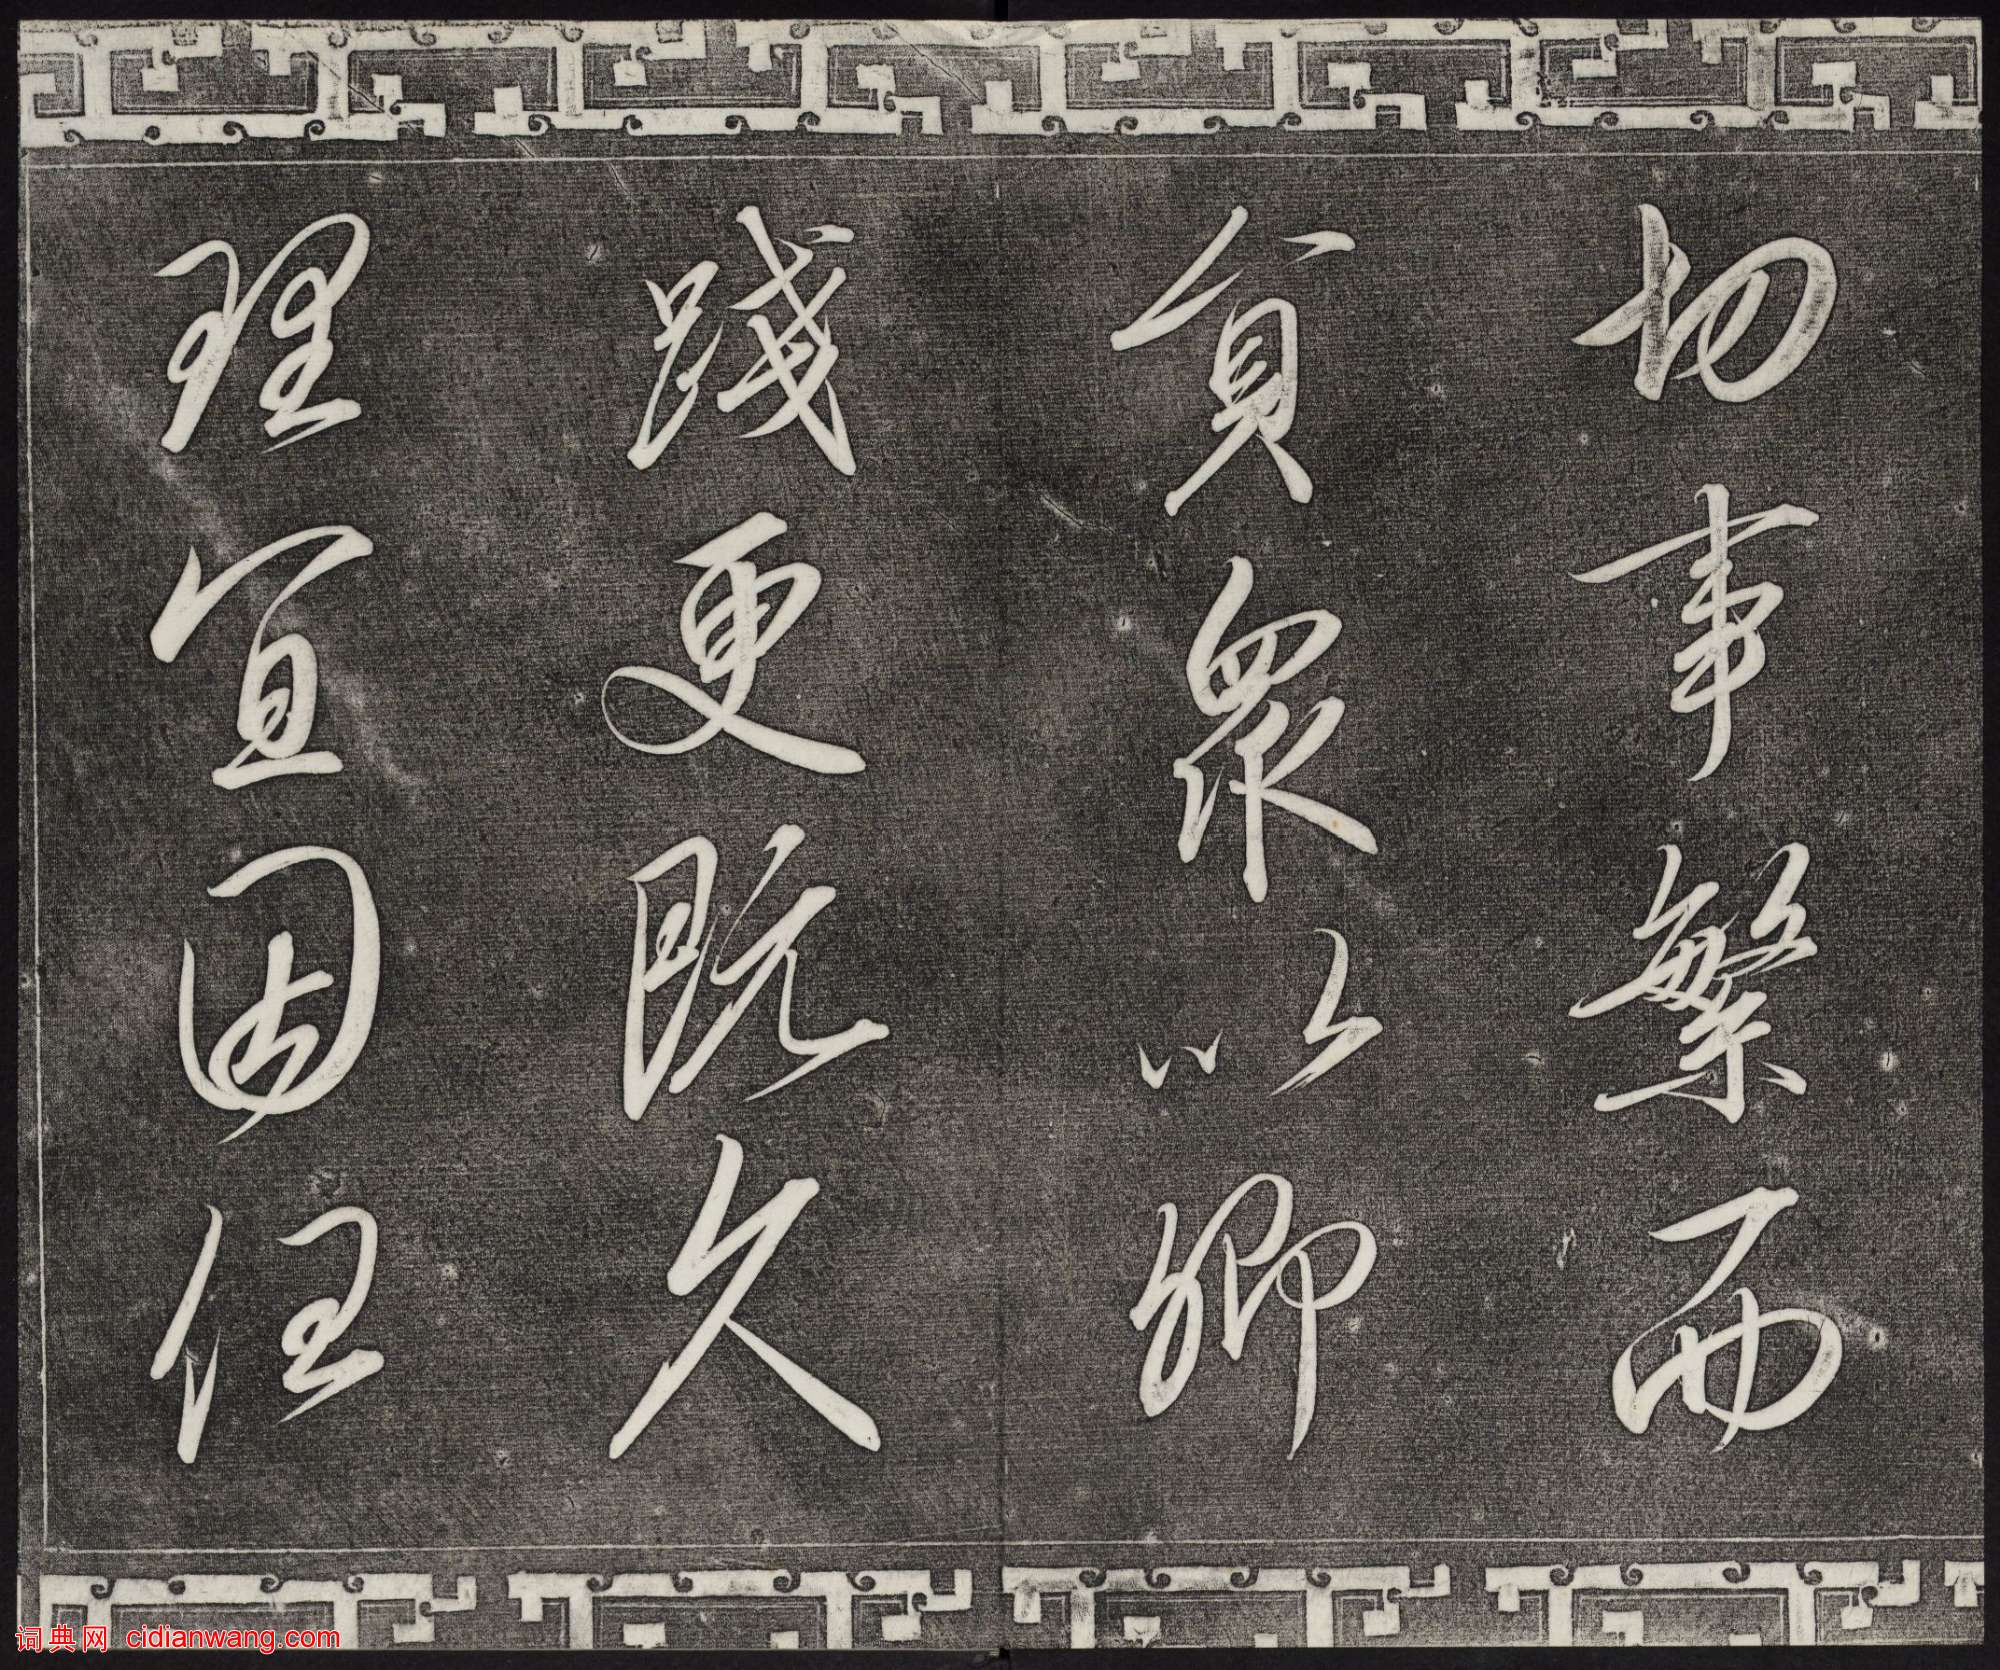 切事繁而
員衆以卿
踐更既久
理宜因任
词典网 cidianwang.com